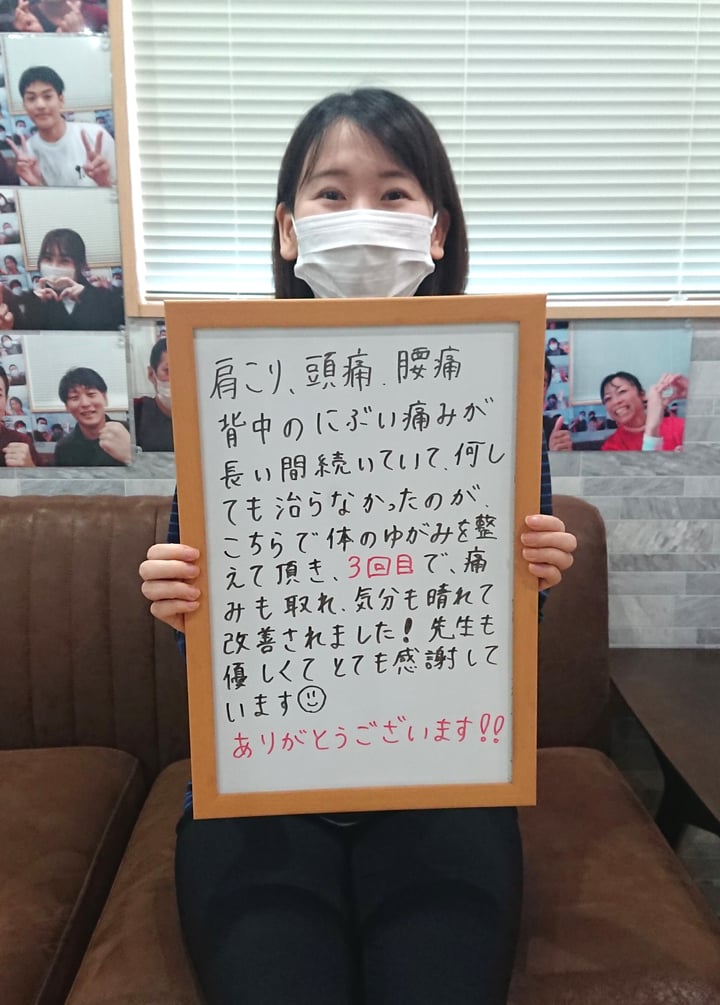 肩こり、頭痛、腰痛
背中のにぶい痛みが
長い間続いていて、何し
ても治らなかったのが、
こちらで体のゆがみを整
えて頂き、3回目で、痛
みも取れ、気分も晴れて
改善されました！先生も
優しくてとても感謝して
います☺
ありがとうございます!!